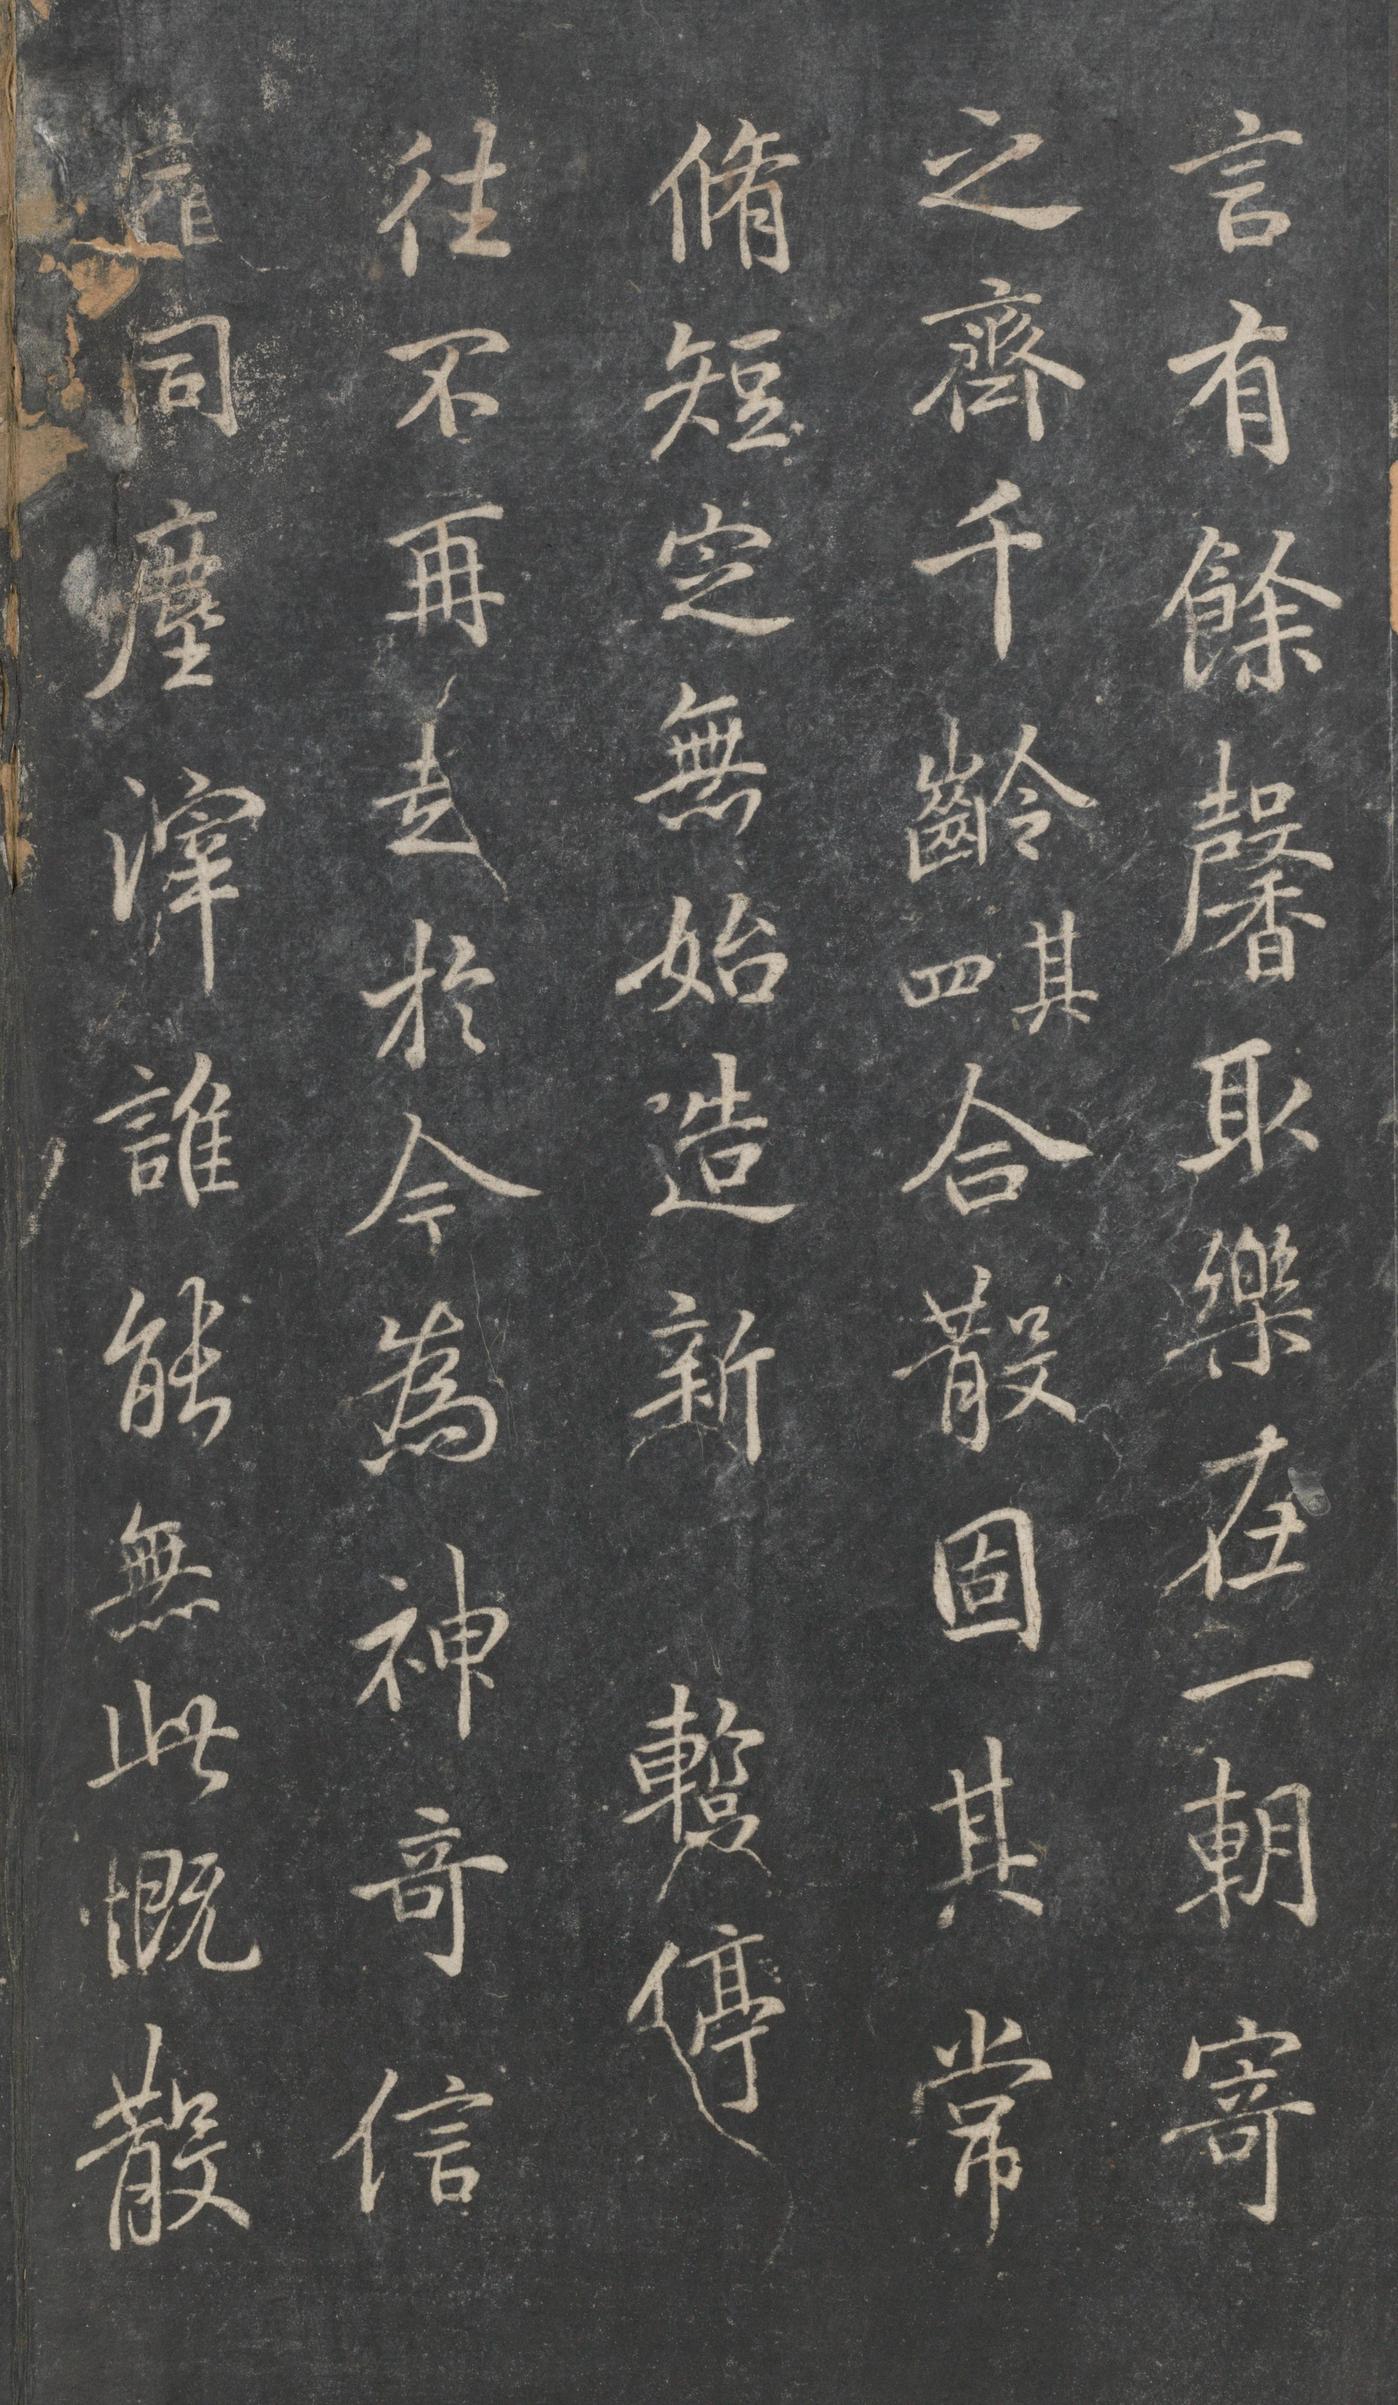 言有餘馨取樂在一朝寄
之齊千齡其四合散固其常
脩短定無始造新暫停
往不再起於今為神奇信
宿同塵滓誰能無此慨散